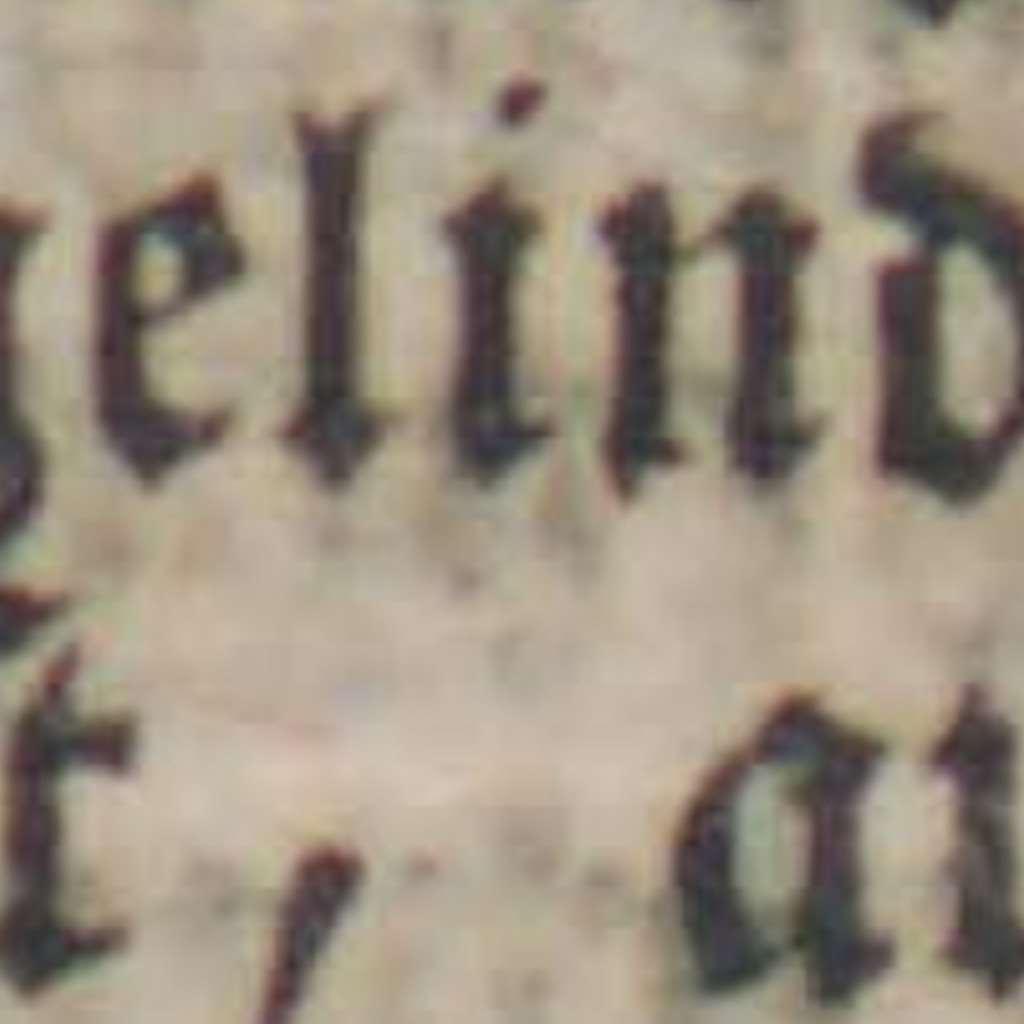 gelind
t, au